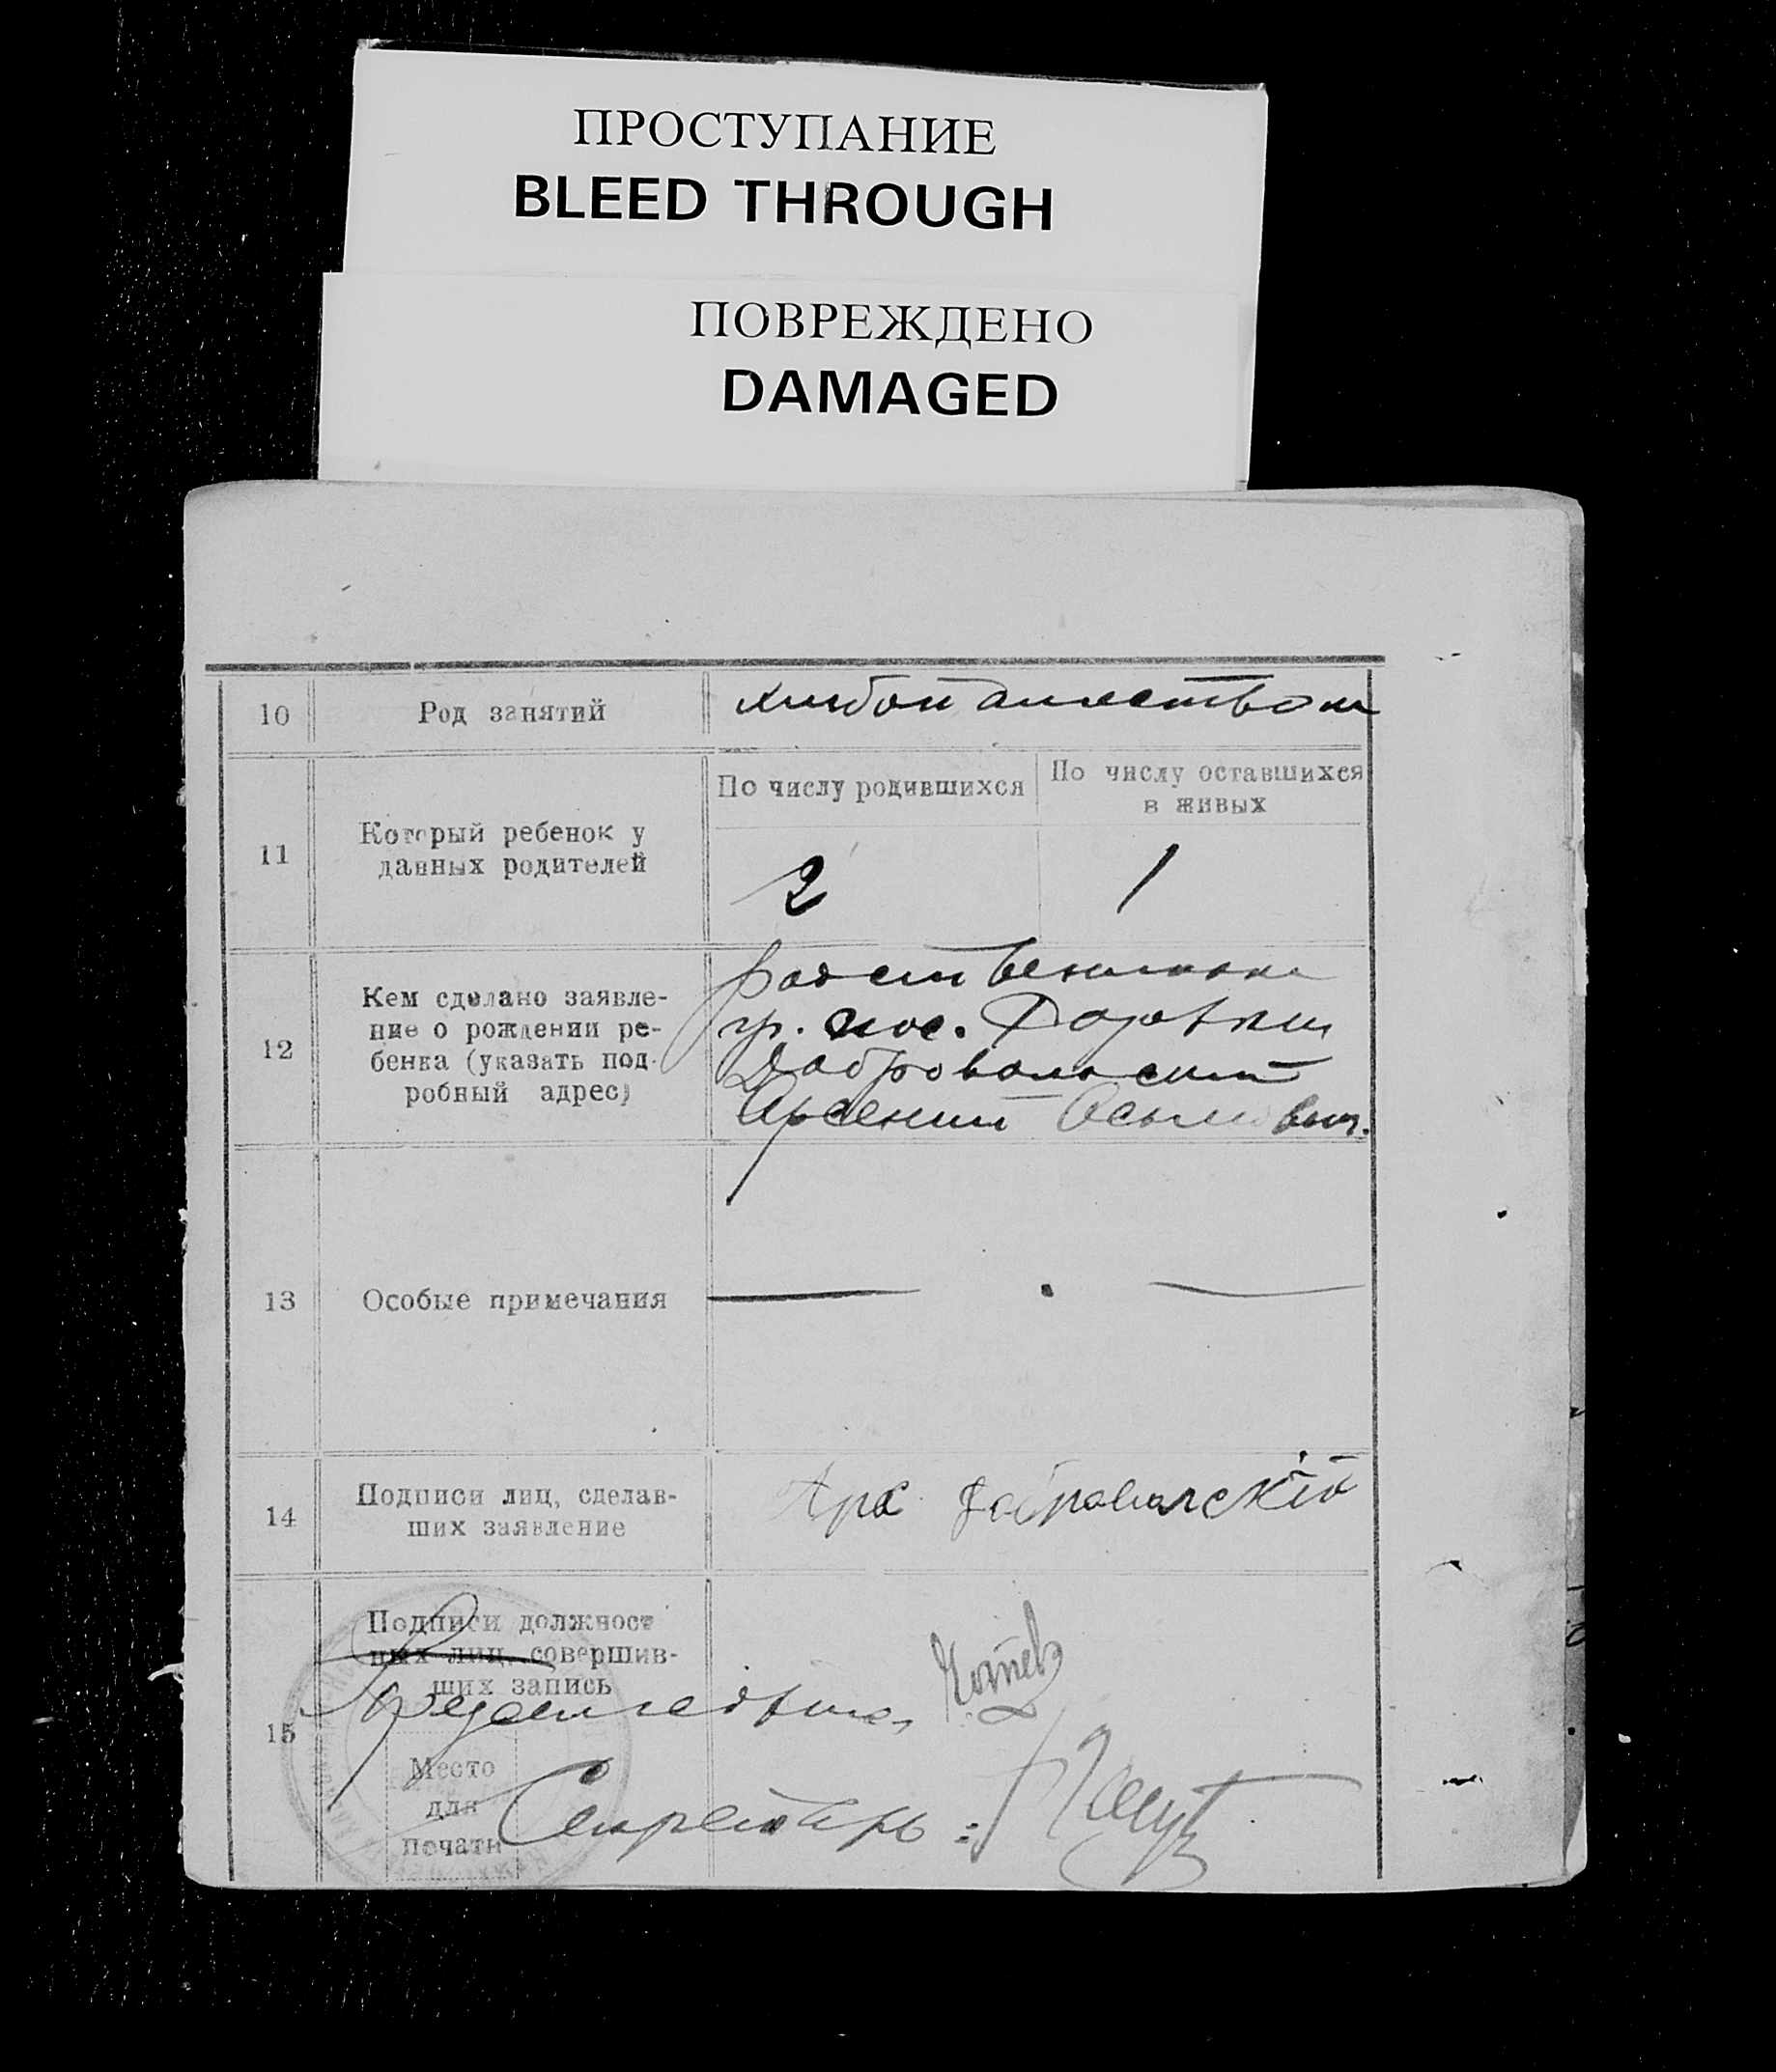 ПРОСТУПАНИЕ
BLEED THROUGH
ПОВРЕЖДЕНО
DAMAGED
10
Род занятий
хлебопашеством
11
Который ребенок у
данных родителей
По числу родившихся
По числу оставшихся
в живых
2
1
12
Кем сделано заявле-
ние о рождении ре-
бенка (указать под-
робный адрес)
родственник
гр. пос.
Добровольский
Арсений
13
Особые примечания
14
Подписи лиц, сделав-
ших заявление
Арс
15
Подписи должност
ных лиц, совершив-
ших запись
Место
для
печати
Секретарь: